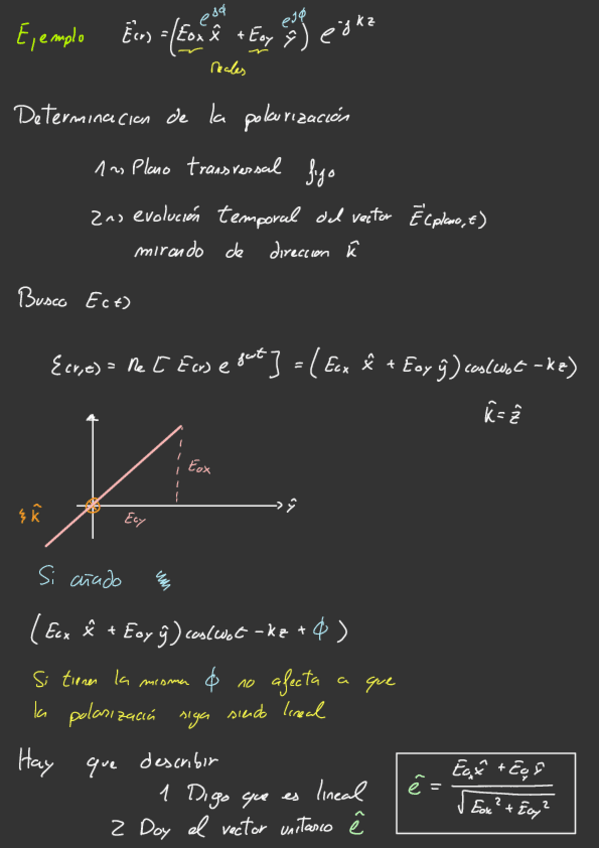 Ejemplo E⃗(r) = (E₀ₓ e^{jϕ} x̂ + E₀y e^{jϕ} ŷ) e^{-jkz}
reales
Determinacion de la polarización
1 ~> Plano transversal fijo
2 ~> evolución temporal del vector E⃗(plano,t)
mirando de direccion k̂
Busco E(t)
ξ(r,t) = Re [ E(r) e^{jωt} ] = (E₀ₓ x̂ + E₀y ŷ) cos(ω₀t - kz)
k̂ = ẑ
E₀ₓ
ŷ
k̂
E₀y
Si añado
(E₀ₓ x̂ + E₀y ŷ) cos(ω₀t - kz + ϕ)
Si tienen la misma ϕ no afecta a que
la polarizació siga siendo lineal
Hay que describir
1 Digo que es lineal
2 Doy el vector unitario ê
ê = (E₀ₓ x̂ + E₀y ŷ) / √(E₀ₓ² + E₀y²)